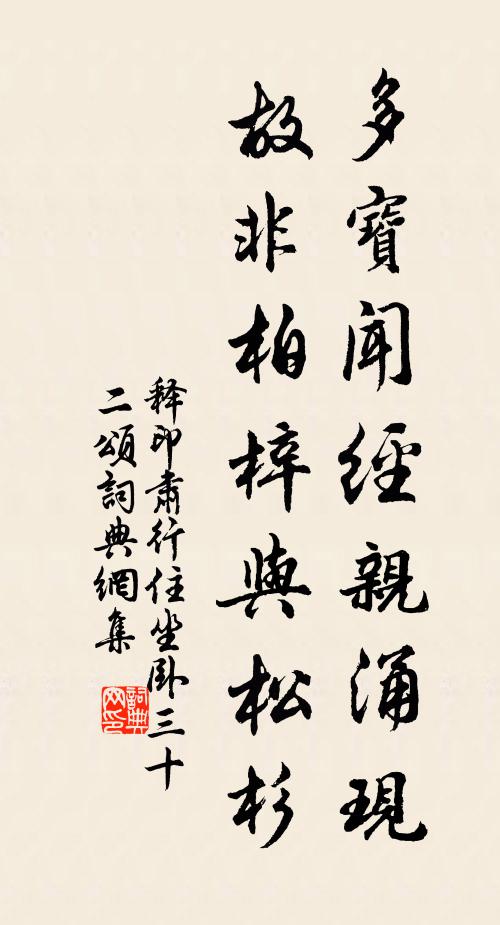 多寶聞經親涌現
故非柏梓與松杉
释印肅行住坐卧三十
二頌詞典網集
詞典网印